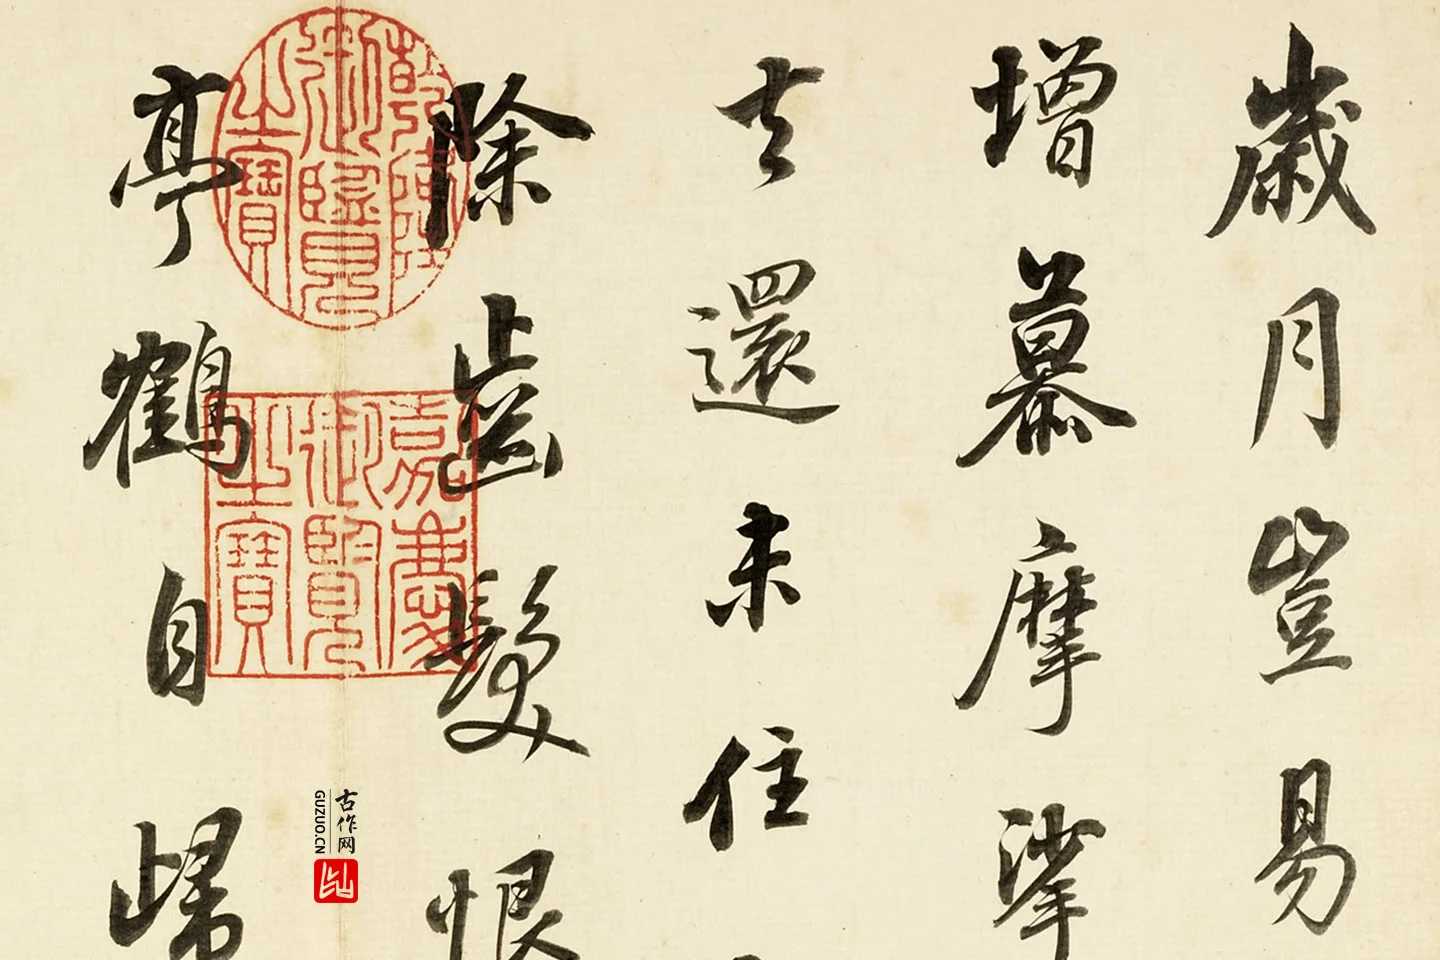 歲月豈易
增慕摩挲
去還未住
除齒髮恨
亭鶴自歸
乾隆御覽之寶
嘉慶御覽之寶
古作网
GUZUO.CN